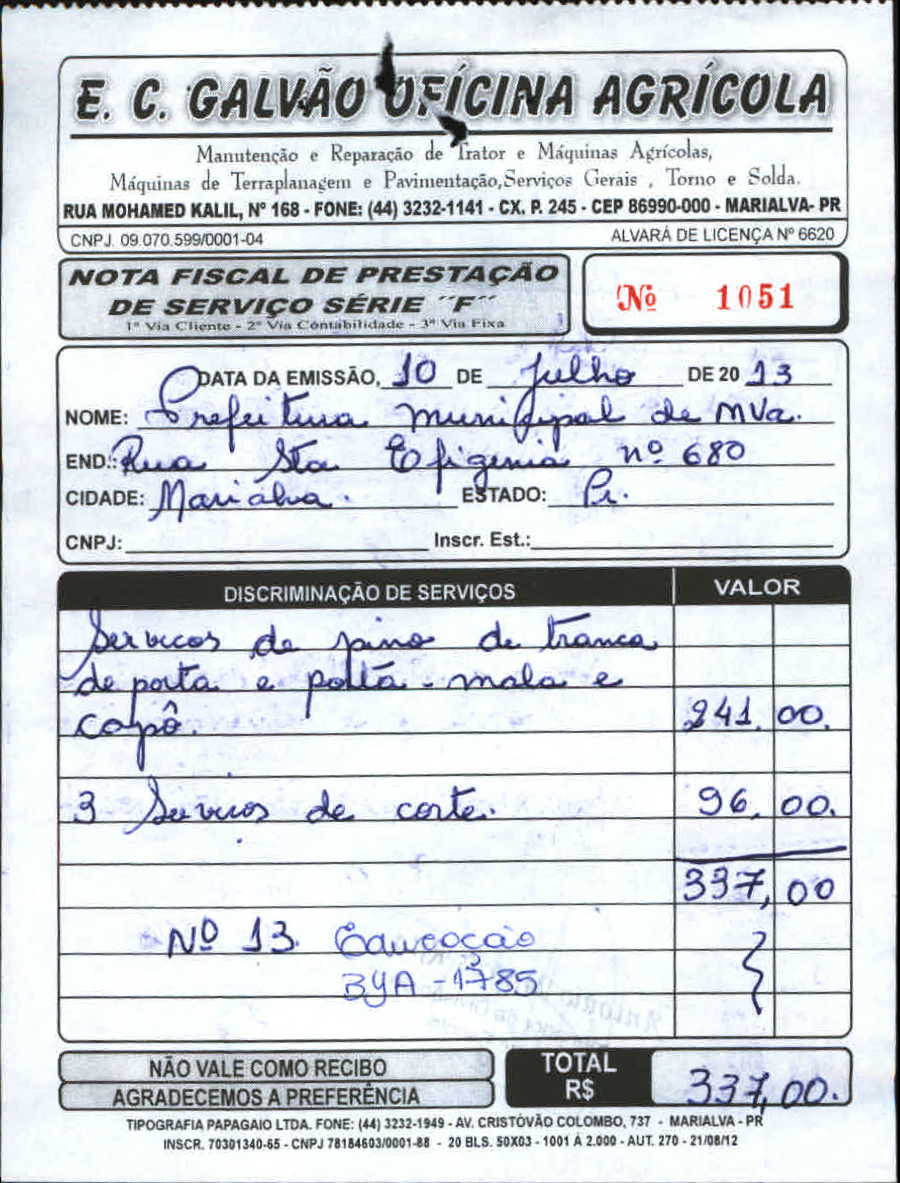 E. C. GALVÃO OFÍCINA AGRÍCOLA
Manutenção e Reparação de Trator e Máquinas Agrícolas,
Máquinas de Terraplanagem e Pavimentação,Serviços Gerais , Torno e Solda.
RUA MOHAMED KALIL, Nº 168 - FONE: (44) 3232-1141 - CX. P. 245 - CEP 86990-000 - MARIALVA- PR
CNPJ. 09.070.599/0001-04 ALVARÁ DE LICENÇA Nº 6620
NOTA FISCAL DE PRESTAÇÃO
DE SERVIÇO SÉRIE ´´F´´
1ª Via Cliente - 2ª Via Contabilidade - 3ª Via Fixa
Nº 1051
DATA DA EMISSÃO, 10 DE Julho DE 20 13
NOME: Prefeitura municipal de MVa.
END.: Rua Sta Efigenia nº 680
CIDADE: Marialva. ESTADO: Pr.
CNPJ: Inscr. Est.:
DISCRIMINAÇÃO DE SERVIÇOS VALOR
Servicos de pino de tranca
de porta e porta-mala e
capô. 241,00.
3 Servicos de corte. 96,00.
337,00
Nº 13. Educação
BYA-1785
NÃO VALE COMO RECIBO
AGRADECEMOS A PREFERÊNCIA
TOTAL
R$ 337,00.
TIPOGRAFIA PAPAGAIO LTDA. FONE: (44) 3232-1949 - AV. CRISTÓVÃO COLOMBO, 737 - MARIALVA - PR
INSCR. 70301340-65 - CNPJ 78184603/0001-88 - 20 BLS. 50X03 - 1001 Á 2.000 - AUT. 270 - 21/08/12